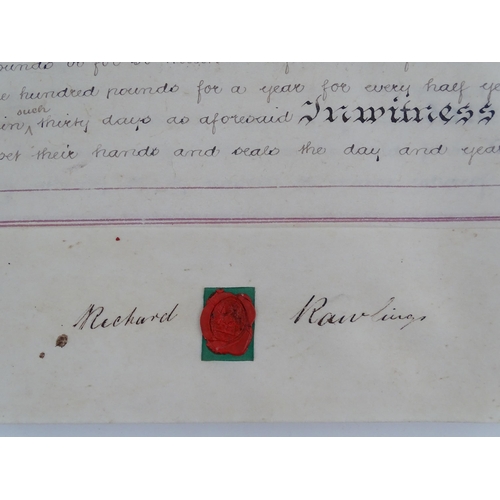 hundred pounds for a year for every half
such
thirty days as aforesaid In witness
set their hands and seals the day and year
Richard Rawlings